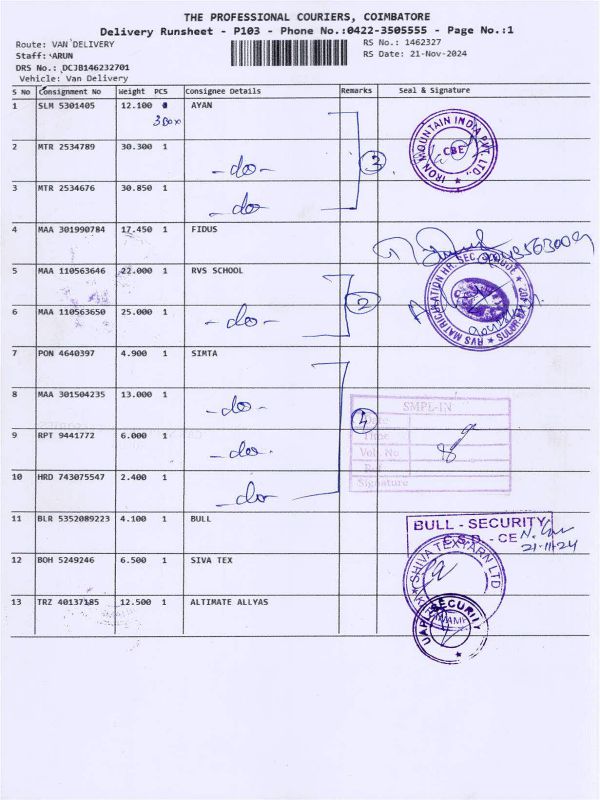 THE PROFESSIONAL COURIERS, COIMBATORE
Delivery Runsheet - P103 - Phone No.:0422-3505555 - Page No.:1
Route: VAN DELIVERY
RS No.: 1462327
Staff: ARUN
RS Date: 21-Nov-2024
DRS No.: DCJB146232701
Vehicle: Van Delivery
S No Consignment No Weight PCS Consignee Details Remarks Seal & Signature
1 SLM 5301405 12.100 AYAN
3 Box
2 MTR 2534789 30.300 1 -do- 3
IRON MOUNTAIN INDIA PVT. LTD.,
CBE
3 MTR 2534676 30.850 1 -do-
4 MAA 301990784 17.450 1 FIDUS
5 MAA 110563646 22.000 1 RVS SCHOOL
6 MAA 110563650 25.000 1 -do- 2
RVS MATRICULATION HR. SEC.
7 PON 4640397 4.900 1 SIMTA
8 MAA 301504235 13.000 1 -do- 4
SMPL-IN
Time
Signature
9 RPT 9441772 6.000 1 -do-
10 HRD 743075547 2.400 1 -do-
11 BLR 5352089223 4.100 1 BULL
BULL - SECURITY
C.S.D. - CE
21-11-24
12 BOH 5249246 6.500 1 SIVA TEX
SHIVA TEXYARN LTD
13 TRZ 40137185 12.500 1 ALTIMATE ALLYAS
SECURITY